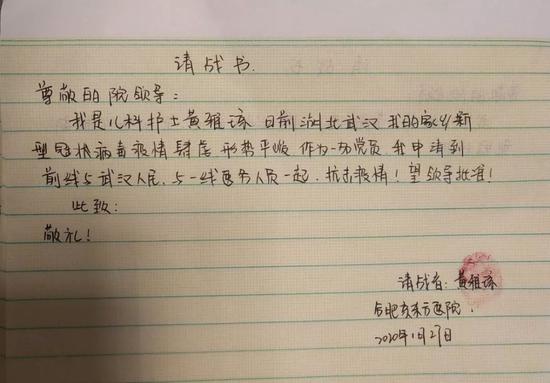 请战书
尊敬的院领导:
我是儿科护士黄雅 目前湖北武汉 我的家乡新
型冠状病毒疫情肆虐 形势严峻 作为一名党员 我申请到
前线与武汉人民、与一线医务人员一起,抗击疫情!望领导批准!
此致:
敬礼!
请战者:黄雅
合肥东方医院
2020年1月27日